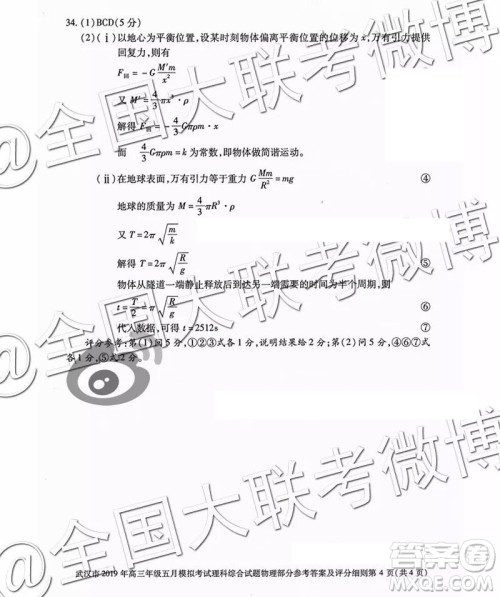 34. (1)BCD(5 分)
(2)(ⅰ)以地心为平衡位置,设某时刻物体偏离平衡位置的位移为 x,万有引力提供
回复力,则有
F回 = -G M′m/x²
又 M′ = 4/3 πx³·ρ
解得 F回 = -4/3 Gπρm·x
而 4/3 Gπρm = k 为常数,即物体做简谐运动。
(ⅱ)在地球表面,万有引力等于重力 G Mm/R² = mg ④
地球的质量为 M = 4/3 πR³·ρ
又 T = 2π√(m/k)
解得 T = 2π√(R/g) ⑤
物体从隧道一端静止释放后到达另一端需要的时间为半个周期,则
t = T/2 = π√(R/g) ⑥
代入数据,可得 t = 2512s ⑦
评分参考:第(1)问 5 分,①②③式各 1 分,说明结果给 2 分;第(2)问 5 分,④⑥⑦式
各 1 分,⑤式 2 分
武汉市 2019 年高三年级五月模拟考试理科综合试题物理部分参考答案及评分细则第 4 页(共 4 页)
@全国大联考微博
@全国大联考微博